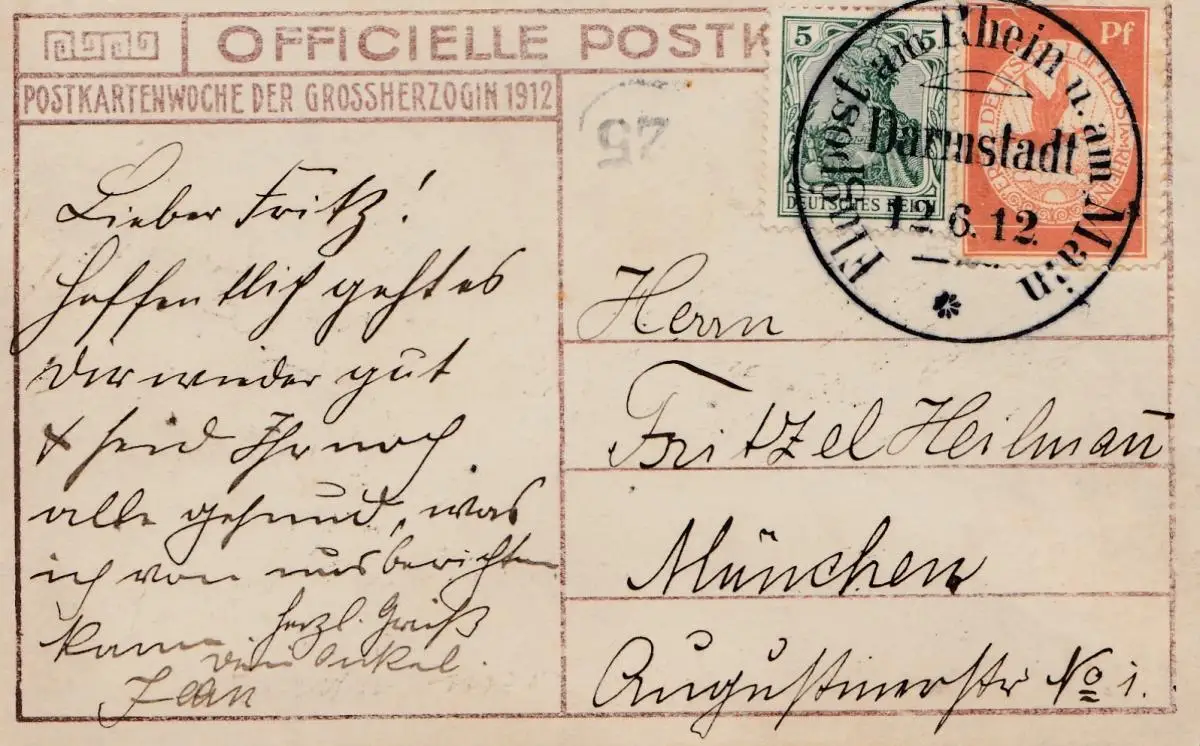 OFFICIELLE POSTK
POSTKARTENWOCHE DER GROSSHERZOGIN 1912
25
5 5
DEUTSCHES REICH
Pf
Flugpost am Rhein u. am Main
Darmstadt
12.6.12.
Lieber Fritz!
Hoffentlich geht es
Dir wieder gut
& seid Ihr noch
alle gesund, was
ich von uns berichten
kann herzl. Gruß
dein Onkel.
Jean
Herrn
Fritzel Heilmañ
München
Augustinerstr No 1.